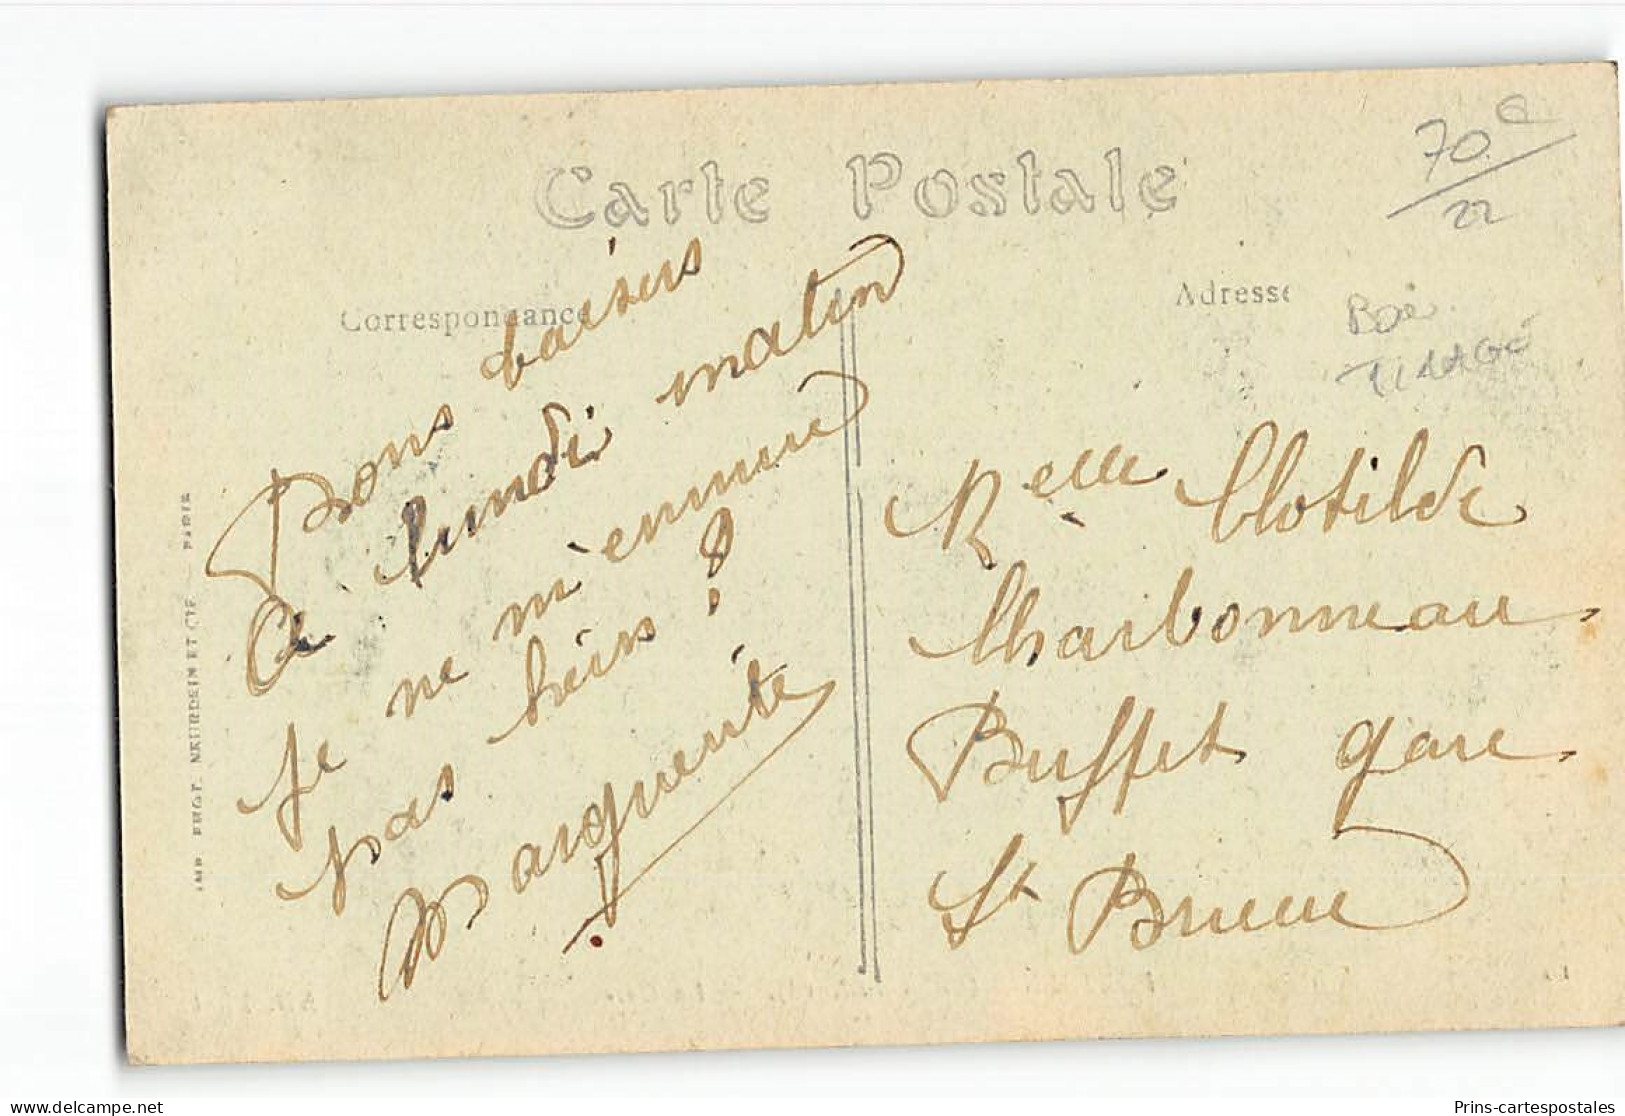 Carte Postale
70e
22
Correspondance
Adresse
Bon
TIRAGE
Bons baisers
à lundi matin
je ne m'ennuie
pas hein !
Marguerite
Melle Clotilde
Charbonneau
Buffet gare
St Brieuc
IMP. PHOT. NEURDEIN ET CIE — PARIS
Prins-cartespostales